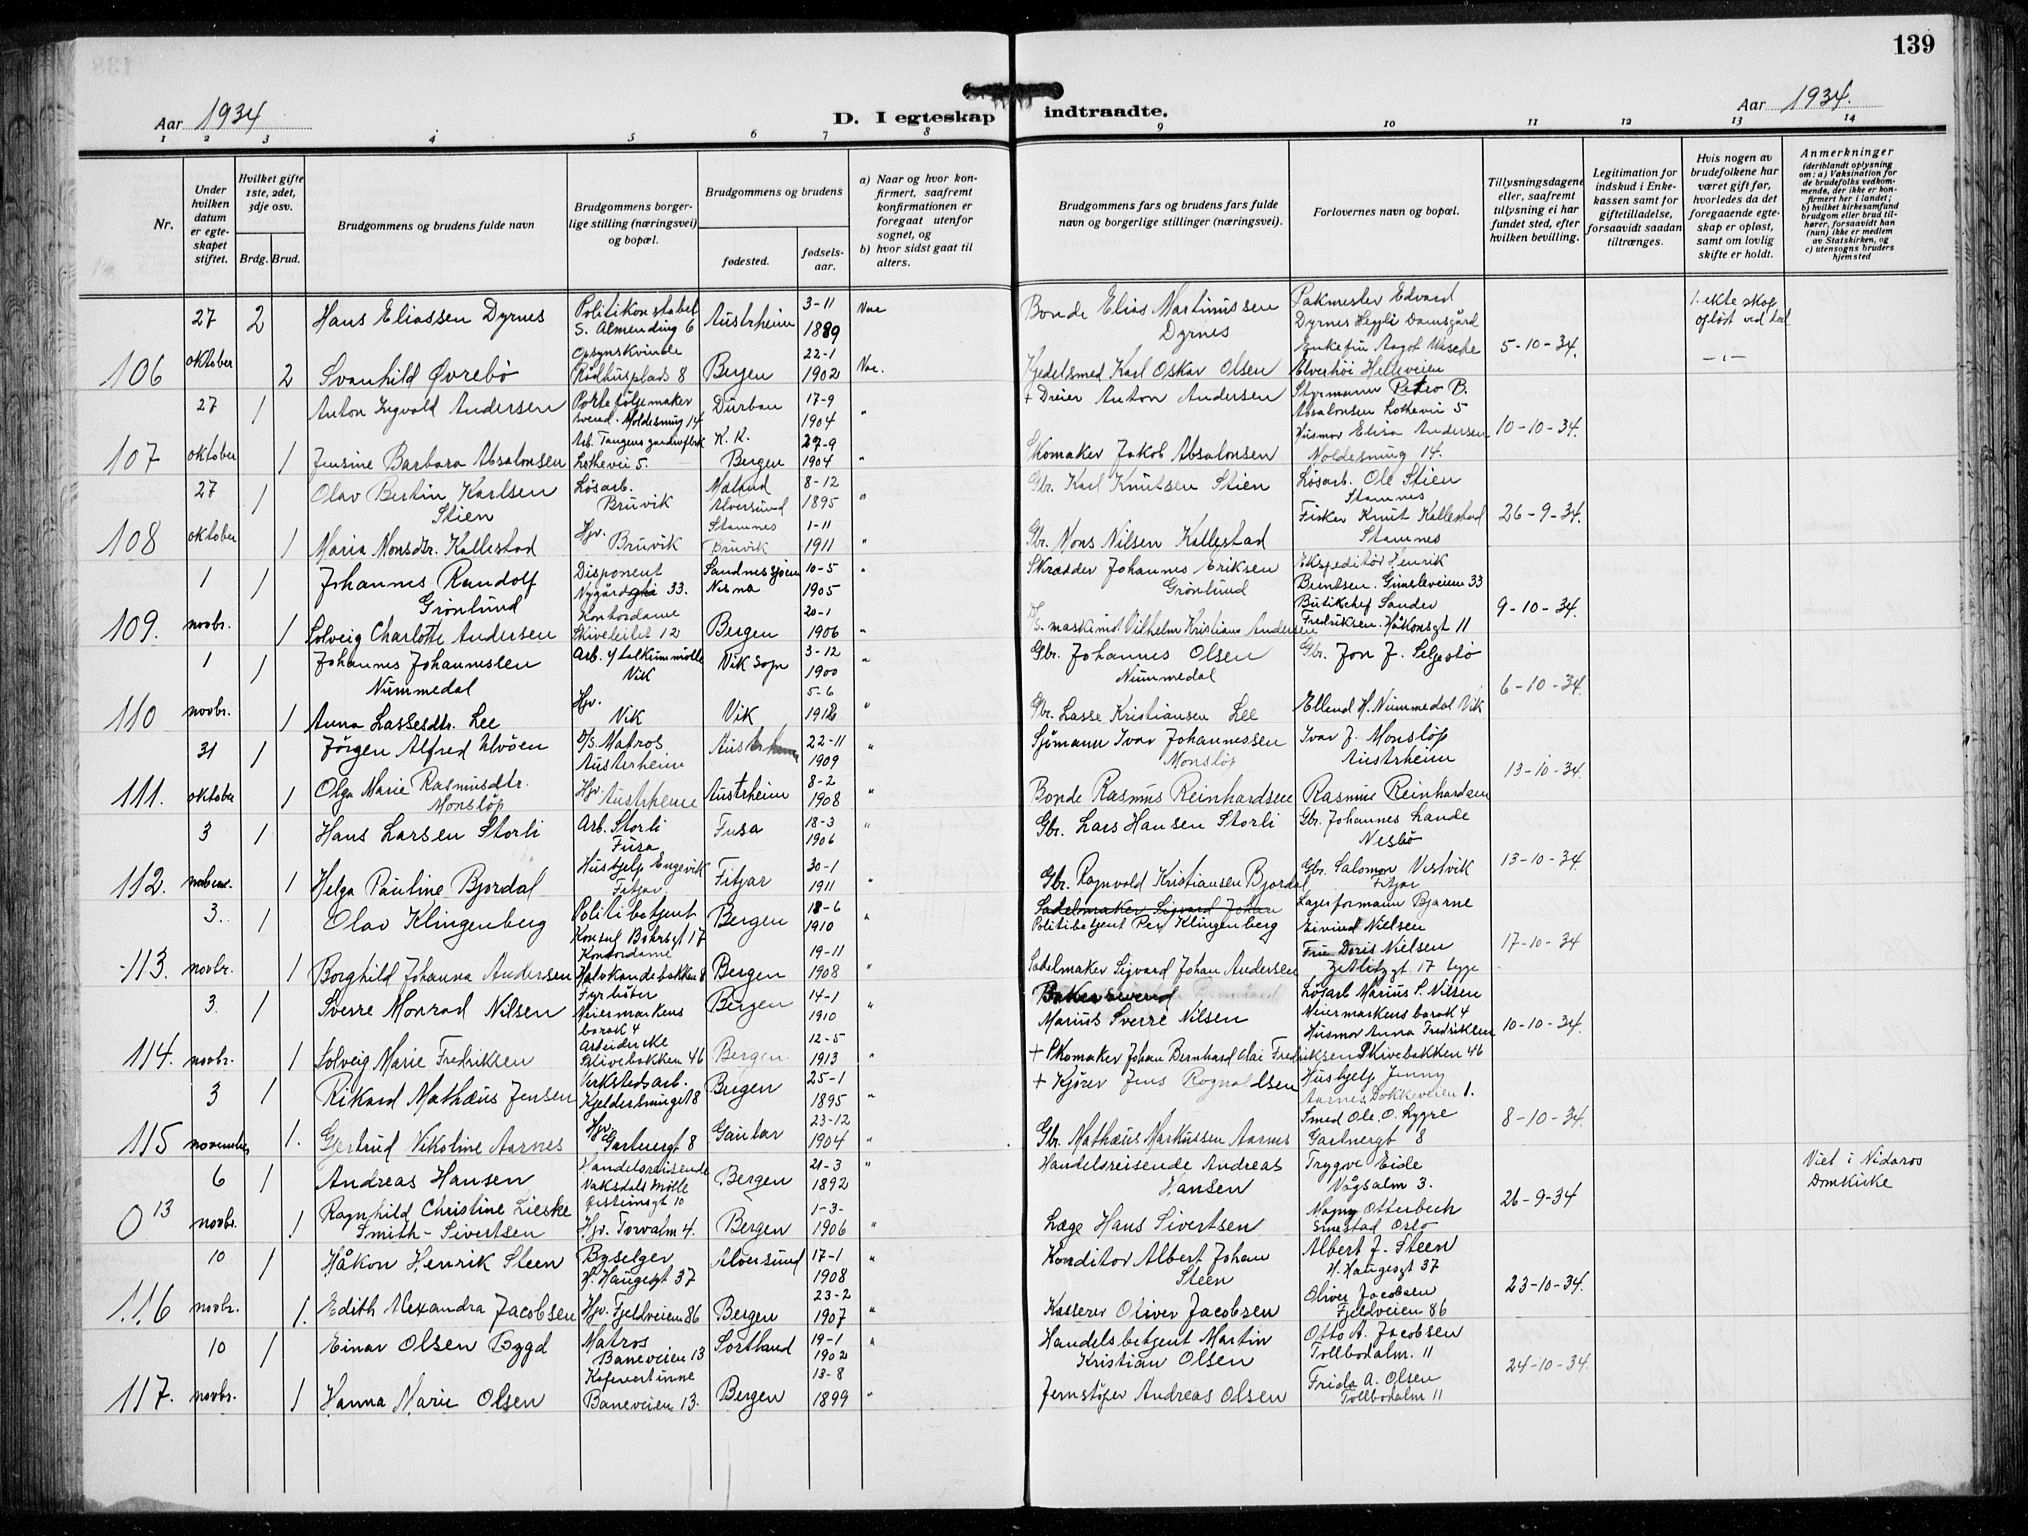 139
Aar 1934
D. I egteskap indtraadte.
Aar 1934.
1 2 3 4 5 6 7 8 9 10 11 12 13 14
Nr.
Under hvilken datum er egteskapet stiftet.
Hvilket gifte 1ste, 2det, 3dje osv.
Brdg. Brud.
Brudgommens og brudens fulde navn
Brudgommens borgerlige stilling (næringsvei) og bopæl.
Brudgommens og brudens
fødested.
fødselsaar.
a) Naar og hvor konfirmert, saafremt konfirmationen er foregaat utenfor sognet, og
b) hvor sidst gaat til alters.
Brudgommens fars og brudens fars fulde navn og borgerlige stillinger (næringsvei).
Forlovernes navn og bopæl.
Tillysningsdagene eller, saafremt tillysning ei har fundet sted, efter hvilken bevilling.
Legitimation for indskud i Enkekassen samt for giftetilladelse, forsaavidt saadan tiltrænges.
Hvis nogen av brudefolkene har været gift før, hvorledes da det foregaaende egteskap er opløst, samt om lovlig skifte er holdt.
Anmerkninger
(deriblandt oplysning om: a) Vaksination for de brudefolks vedkommende, der ikke er konfirmert her i landet; b) hvilket kirkesamfund brudgom eller brud tilhører, forsaavidt han (hun) ikke er medlem av Statskirken, og c) utensogns bruders hjemsted
27 2 Hans Eliassen Dyrnes Politikonstabel S. Almending 6 Austrheim 3-11 1889 Vac Bonde Elias Martinussen Dyrnes Pakmester Edvard Dyrnes Damsgård 1. ekte skap opløst ved død
106 oktober 2 Svanhild Øvrebø Opsynskvinde Rådhusplads 8 Bergen 22-1 1902 Vac. Gjedelsmed Karl Oskar Olsen Enkefru Aagot Elverhöi Helleveien 5-10-34. -"-
27 1 Anton Ingvald Andersen Portefølgemaker svend. Moldesmug 14 Durban 17-9 1904 " + Dreier Anton Andersen Styrmann Petro B. Absalonsen Lotheveien 5
107 oktober 1 Jensine Barbara Absalonsen Arb. Tangens gardinfbrk Lothevei 5. K. K. Bergen 29-9 1904 " Skomaker Jakob Absalonsen Husmor Elisa Andersen Moldesmug 14. 10-10-34.
27 1 Olav Bertin Karlsen Stien Løsarb. Bruvik Mæland Alversund 8-12 1895 " Gbr. Karl Knutsen Stien Løsarb. Ole Stien Stamnes
108 oktober 1 Maria Monsdtr. Kallestad Hjv. Bruvik Stamnes Bruvik 1-11 1911 " Gbr. Mons Nilsen Kallestad Fisker Knut Kallestad Stamnes 26-9-34.
1 1 Johannes Randolf Grønlund Disponent Nygårdsgt 33. Sandnessjøen Nesna 10-5 1905 " Skrædder Johannes Eriksen Grønlund Ekspeditör Henrik Berntsen. Gimleveien 33
109. novbr. 1 Solveig Charlotte Andersen Kontordame Skiveleiet 12 Bergen 20-1 1906 " D/S. maskinist Vilhelm Kristian Andersen Butikchef Sander Fredriksen. Håkonsgt 11 9-10-34.
1 1 Johannes Johannessen Nummedal Arb. v/ talkummölle Vik Vik Sogn 3-12 1900 " Gbr. Johannes Olsen Nummedal Gbr. Jon J. Seljestø
110 novbr. 1 Anna Lassesdtr. Lee Hjv. Vik Vik 5-6 1912 " Gbr. Lasse Kristiansen Lee Ellend H. Nummedal Vik 6-10-34.
31 1 Jørgen Alfred Ulvöen D/S. Matros Austrheim Austrheim 22-11 1909 " Sjømann Ivar Johannessen Monsløp Ivar J. Monsløp Austrheim
111. oktober 1 Olga Marie Rasmusdtr. Monsløp Hjv. Austrheim Austrheim 8-2 1908 " Bonde Rasmus Reinhardsen Rasmus Reinhardsen 13-10-34.
3 1 Hans Larsen Storli Arb. Storli Fusa Fusa 18-3 1906 " Gbr. Lars Hansen Storli Gbr. Johannes Lande Nesbø
112. 1 Helga Pauline Bjordal Hushjelp Engevik Fitjar Fitjar 30-1 1911 " Gbr. Ragnvald Kristiansen Bjordal Gbr. Salomon Vestvik Fitjar 13-10-34.
3. 1 Olav Klingenberg Politibetjent Konsul Børsgt 17 Bergen 18-6 1910 " Sadelmaker Sigvard Johan Politibetjent Per Klingenberg Lagerformann Bjarne Eivind Nielsen
113. novbr. 1 Borghild Johanna Andersen Kontordame Kalvskandebakken 8 Bergen 19-11 1908 " Sadelmaker Sigvard Johan Andersen Fru Doris Nielsen Zetlitzgt. 17 17-10-34
3. 1 Sverre Monrad Nilsen Fyrbøter Meiermarkens barak 4 Bergen 14-1 1910 " Bakersvend Marius Sverre Nilsen Løsarb Marius S. Nilsen Meiermarkens barak 4
114. novbr. 1 Solveig Marie Fredriksen Arbeiderske Skivebakken 46 Bergen 12-5 1913 " + Skomaker Johan Bernhard Olai Fredriksen Husmor Anna Fredriksen Skivebakken 46 10-10-34.
3 1 Rikard Mathæus Jensen Verkstedsarb. Kjeldersmuget 8 Bergen 25-1 1895 " + Kjører Jens Rognaldsen Hushjelp Jenny Aarnes. Dokkeveien 1.
115 november 1. Gjertrud Nikoline Aarnes Hjv. Gartnergt 8 Gaular 23-12 1904 " Gbr. Mathæus Markussen Aarnes Smed Ole. O. Lygre Gartnergt 8 8-10-34.
6 1 Andreas Hansen Handelsreisende Vaksdals Mölle Øisteinsgt 10 Bergen 21-3 1892 " Handelsreisende Andreas Hansen Trygve Eide Vågsalm 3. Viet i Nidaros Domkirke
0 13 novbr. 1 Ragnhild Christine Lieske Smith-Sivertsen Hjv. Torvalm 4. Bergen 1-3- 1906 " Læge Hans Sivertsen Magny Otterbech Smestad Oslo 26-9-34
10 1 Håkon Henrik Steen Byselger H. Haugesgt 37 Alversund 17-1 1908 " Konditor Albert Johan Steen Albert J. Steen H. Haugesgt 37
116 novbr. 1. Edith Alexandra Jacobsen Hjv. Fjeldveien 86 Bergen 23-2 1907 " Kasserer Oliver Jacobsen Oliver Jacobsen Fjeldveien 86 23-10-34.
10 1 Einar Olsen Bygd Matros Baneveien 13 Sortland 19-1 1902 " Handelsbetjent Martin Kristian Olsen Otto A. Jacobsen Tollbodalm. 11
117. novbr. 1 Hanna Marie Olsen Kafevertinne Baneveien 13. Bergen 13-8 1899 " Jernstøper Andreas Olsen Frida A. Olsen Tollbodalm 11 24-10-34.